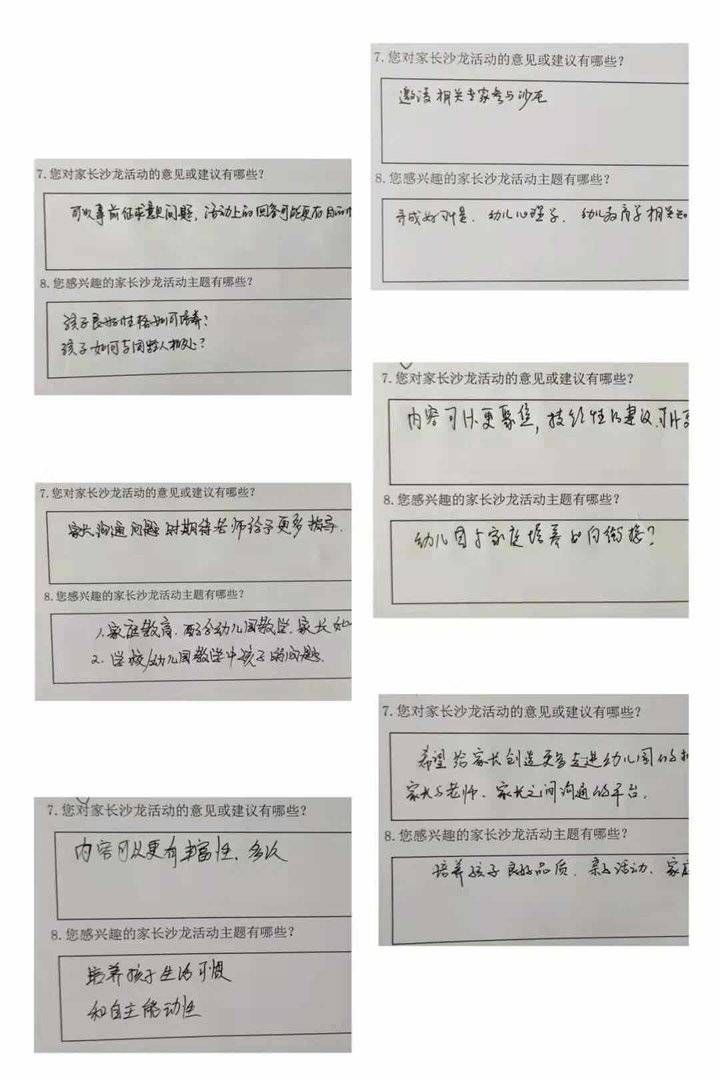 7.您对家长沙龙活动的意见或建议有哪些?
可以事前征求意见问题,活动上的回答可能更有目的
8.您感兴趣的家长沙龙活动主题有哪些?
孩子良好性格如何培养?
孩子如何与同龄人相处?
7.您对家长沙龙活动的意见或建议有哪些?
家长沟通问题时期待老师给予更多指导.
8.您感兴趣的家长沙龙活动主题有哪些?
1.家庭教育.配合幼儿园教学.家长如
2.学校/幼儿园教学中孩子的问题.
7.您对家长沙龙活动的意见或建议有哪些?
内容可以更有丰富性.多次
8.您感兴趣的家长沙龙活动主题有哪些?
培养孩子生活习惯
和自主能动性
7.您对家长沙龙活动的意见或建议有哪些?
邀请相关专家参与沙龙
8.您感兴趣的家长沙龙活动主题有哪些?
养成好习惯、幼儿心理学、幼儿教育学相关知
7.您对家长沙龙活动的意见或建议有哪些?
内容可以更聚焦,技经性的建议.可以
8.您感兴趣的家长沙龙活动主题有哪些?
幼儿园与家庭培养如何衔接?
7.您对家长沙龙活动的意见或建议有哪些?
希望给家长创造更多走进幼儿园的机
家长与老师、家长之间沟通的平台.
8.您感兴趣的家长沙龙活动主题有哪些?
培养孩子良好品质、亲子活动、家庭